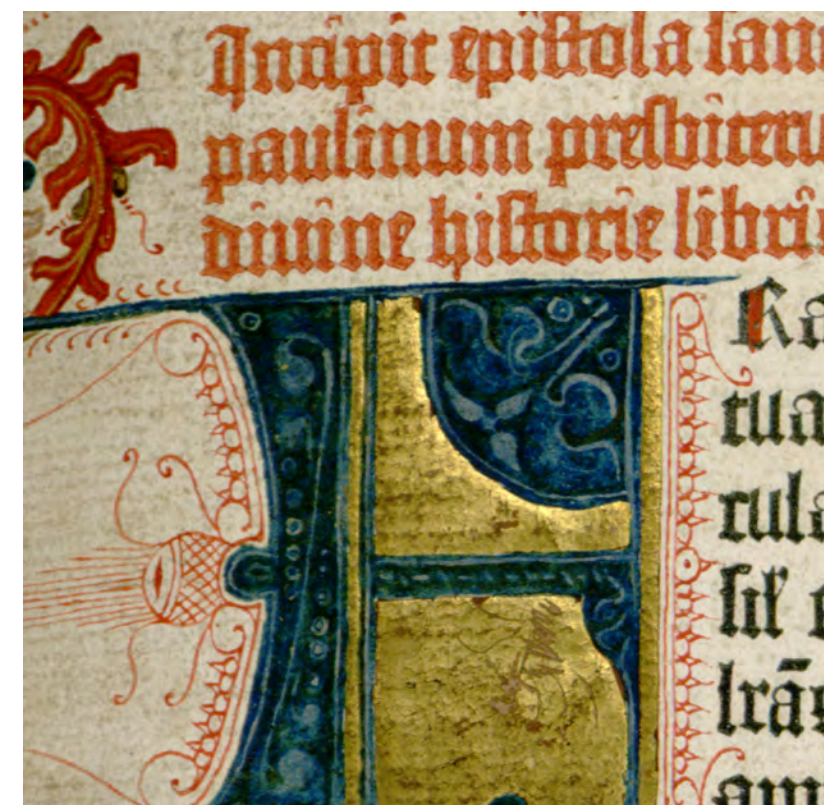 Incipit epistola san
paulinum presbiteru
divine historie libri
Ra
tua
cula
sil'
lrās
am